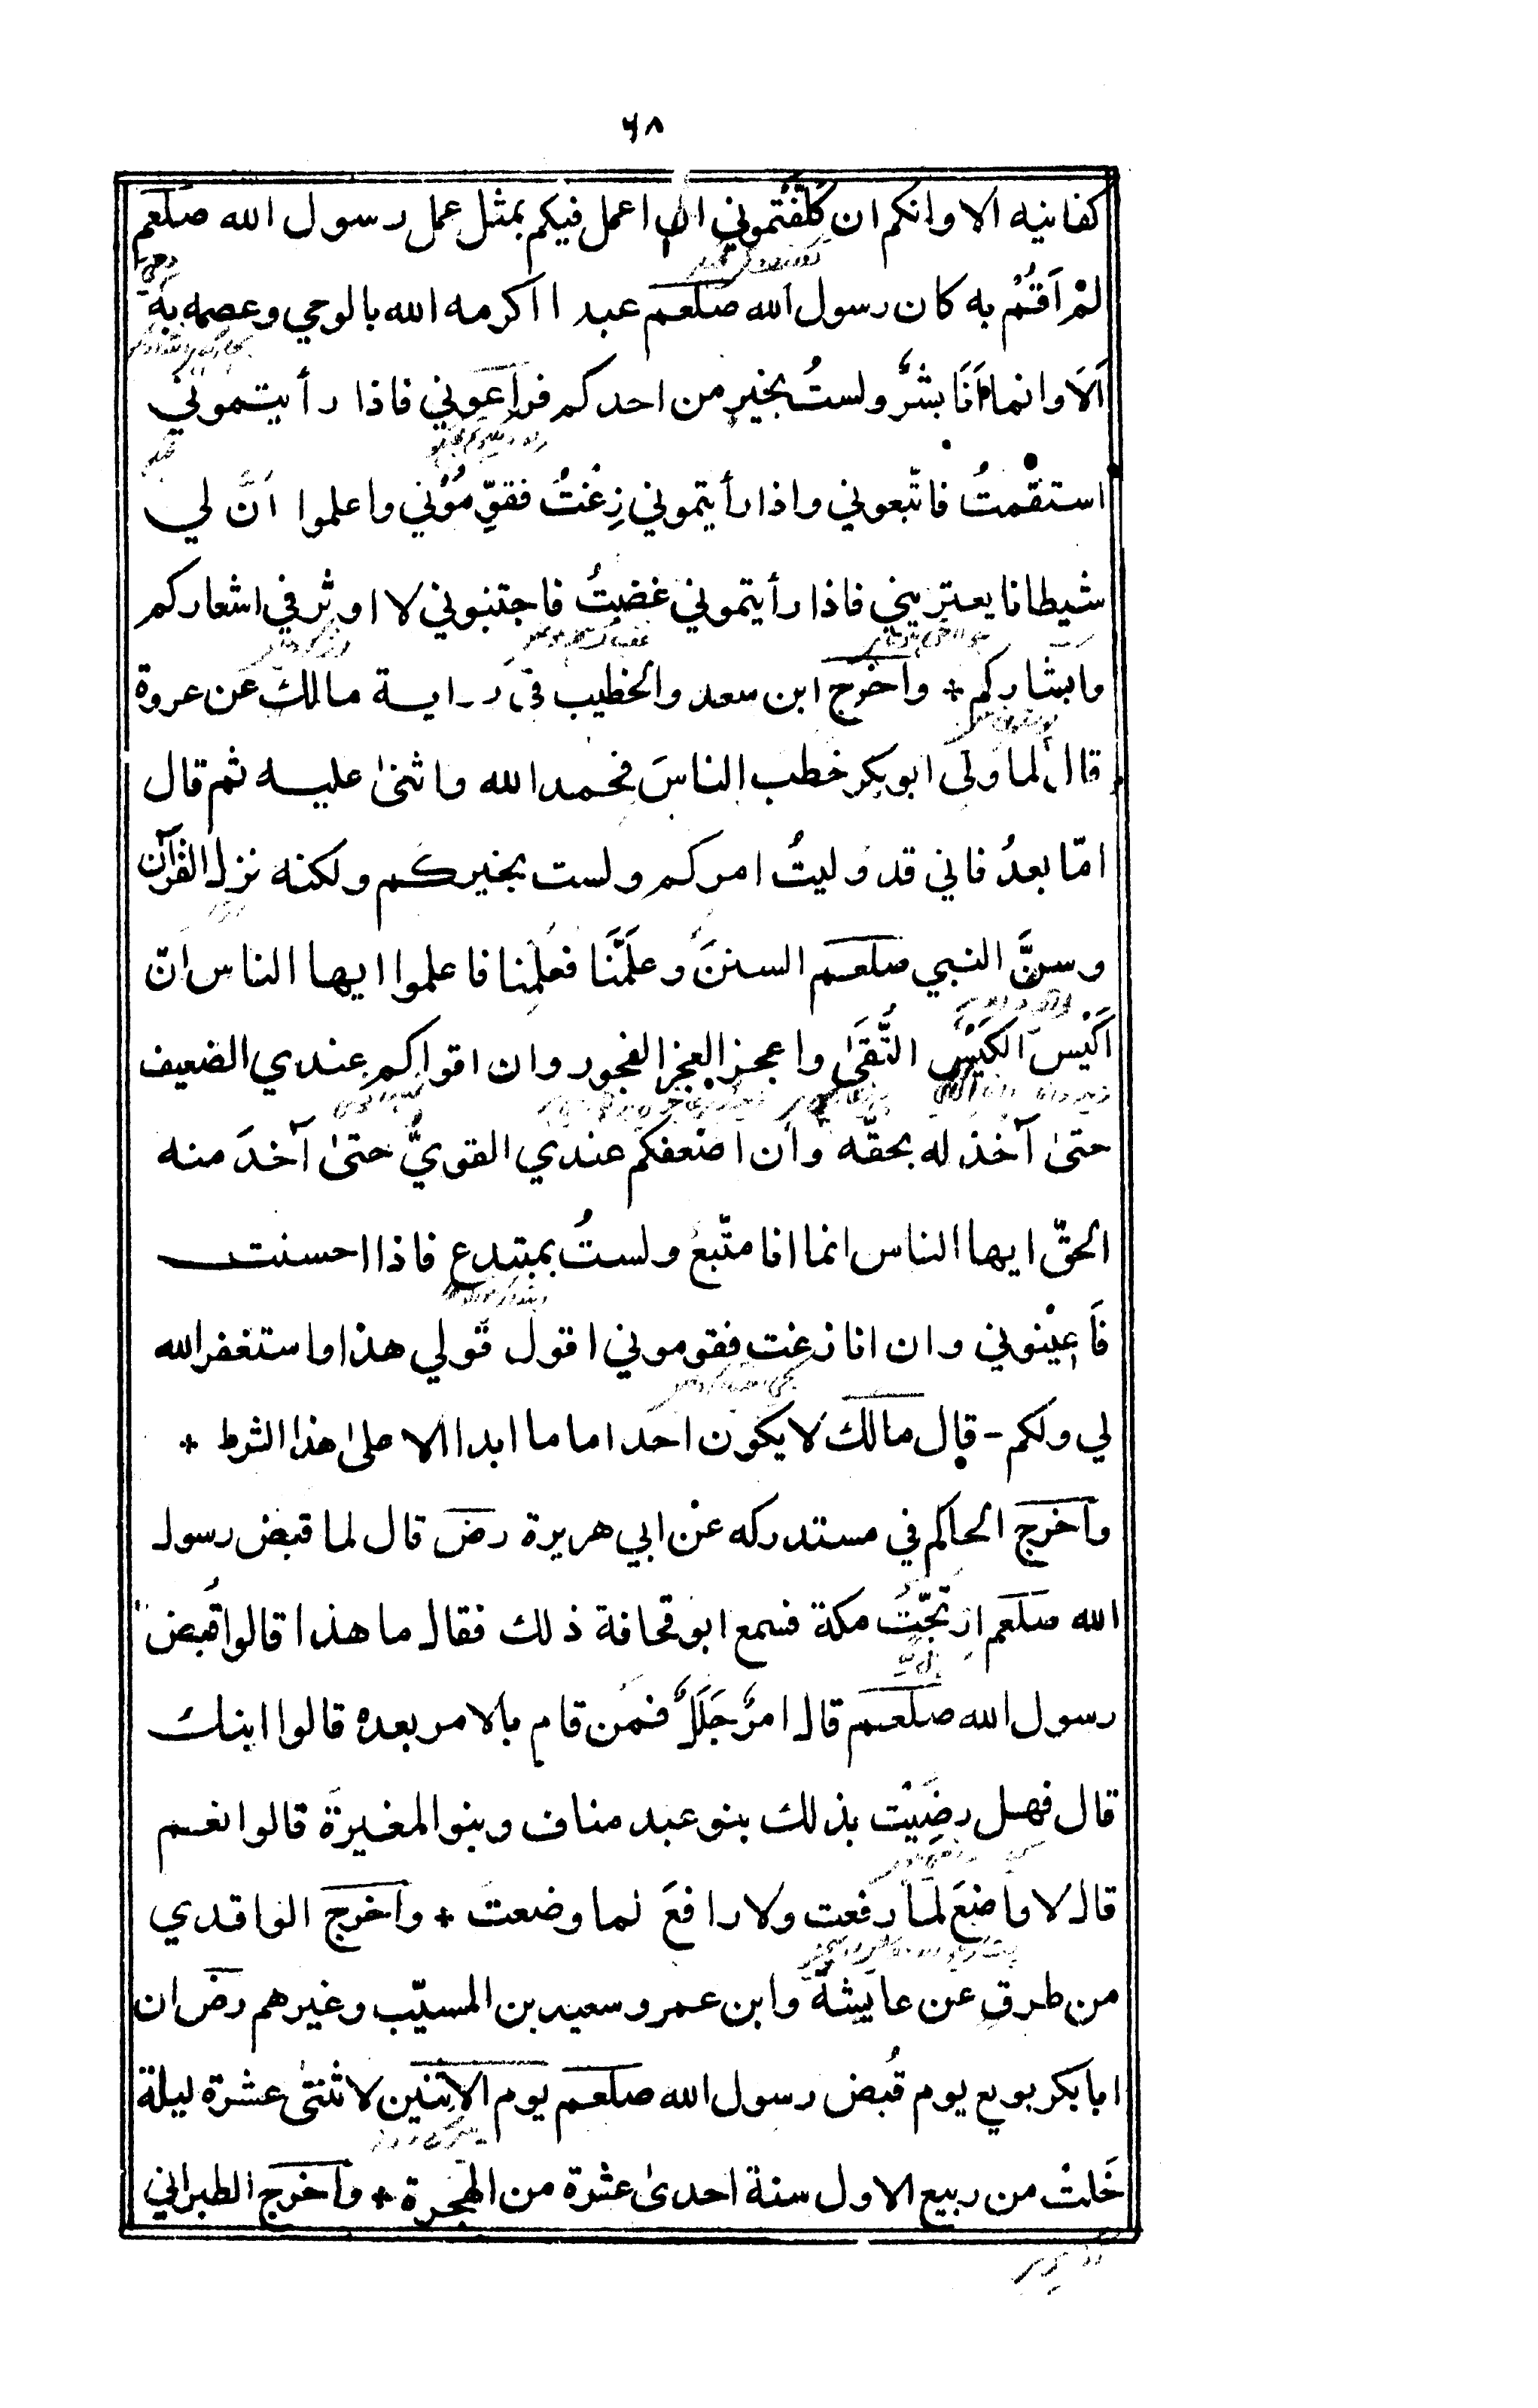 ٦٨
كفانيه الا وانكم ان كُلّفتُموني ان اعمل فيكم بمثل عمل رسول الله صلعم
لمْ اَقُمْ به كان رسول الله صلعم عبدا اكرمه الله بالوحي وعصمه به
اَلَا وانما اَنَا بشرٌ ولستُ بخيرٍ من احدكم فراعوني فاذا رأيتموني
استقمتُ فاتّبعوني واذا رأيتموني زِغتُ فقوّمُوْني واعلموا انَّ لي
شيطانا يعتريني فاذا رأيتموني غضبتُ فاجتنبوني لا اوثر في اشعاركم
وابشاركم + واخرج ابن سعد والخطيب في رواية مالك عن عروة
قال لما ولى ابو بكر خطب الناسَ فحمد الله واثنىٰ عليه ثم قال
امّا بعدُ فاني قد وُليتُ امركم ولست بخيركم ولكنه نزل القرآن
وسنَّ النبي صلعم السننَ وعلَّمَنَا فعلِمنا فاعلموا ايها الناس انّ
اَكْيَسَ الكَيْسِ التُّقَىٰ واعجز العجز الفجور وان اقواكم عندي الضعيف
حتىٰ آخذ له بحقّه وان اضعفكم عندي القويُّ حتىٰ آخذَ منه
الحقّ ايها الناس انما انا متّبعٌ ولستُ بمبتدعٍ فاذا احسنت
فَاَعِيْنوني وان انا زغت فقوموني اقول قولي هذا واستغفر الله
لي ولكم - قال مالك لا يكون احد اماما ابدا الا علىٰ هذا الشرط +
واخرج الحاكم في مستدركه عن ابي هريرة رض قال لما قبض رسول
الله صلعم ارتجّتْ مكة فسمع ابو قحافة ذلك فقال ما هذا قالوا قُبض
رسول الله صلعم قال امرٌ جَلَلٌ فمن قام بالامر بعده قالوا ابنك
قال فهل رضِيَتْ بذلك بنو عبد مناف وبنو المغيرة قالوا نعم
قال لا واضعَ لما رفعت ولا رافعَ لما وضعت + واخرج الواقدي
من طرقٍ عن عايشة وابن عمر وسعيد بن المسيّب وغيرهم رض ان
ابا بكر بويع يوم قُبض رسول الله صلعم يوم الاثنين لاثنتىٰ عشرة ليلة
خَلتْ من ربيع الاول سنة احدىٰ عشرة من الهجرة + واخرج الطبراني